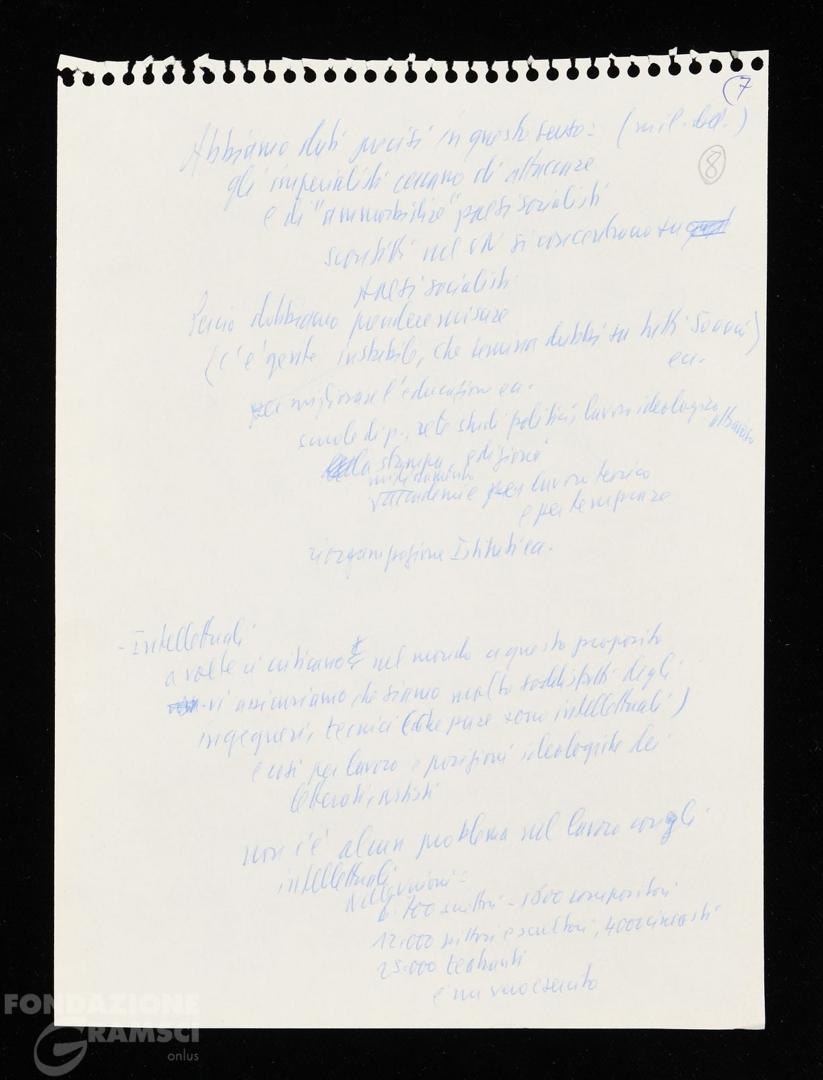 7
8
Abbiamo dati precisi in questo senso: (
gli imperialisti cercano di attaccare
e di "ammorbidire" paesi socialisti
sconfitti nel VN si concentrano su
paesi socialisti
Perciò dobbiamo prendere misure
(c'è gente instabile, che semina dubbi su tutti 50 anni)
ecc.
per migliorare l'educazione ecc.
scuole di p., rete studi politici, lavoro ideologico attraverso
la stampa, edizioni
accademie per lavoro teorico
e per
riorganizzazione Istituti ecc.
- Intellettuali
a volte ci criticano nel mondo a questo proposito
vi assicuriamo che siamo molto soddisfatti degli
ingegneri, tecnici (che pure sono intellettuali)
e così per lavoro e posizioni ideologiche dei
letterati, artisti
non c'è alcun problema nel lavoro con gli
intellettuali
nelle unioni:
6.700 scrittori - 1800 compositori
12.000 pittori e scultori, 4000 cineasti
25.000 teatranti
è un vero esercito
FONDAZIONE
GRAMSCI
onlus